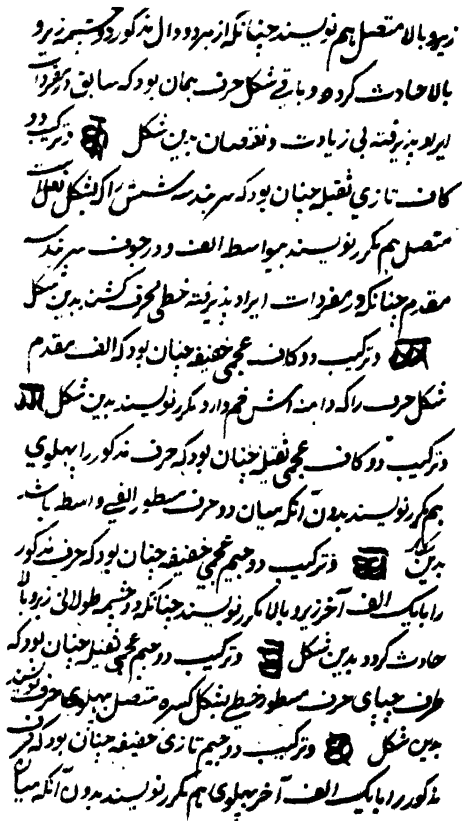 زیر و بالا متصل هم نویسند چنانکه از هر دو دال مذکور دو چشمه زیر و
بالا حادث کردد و باقی شکل حرف همان بود که سابق در مفردات
ایراد پذیرفته بی زیادت و نقصان بدین شکل و ترکیب دو
کاف تازی ثقیله چنان بود که سر هندسه شش را که بشکل
متصل هم مکرر نویسند بیواسطه الف و در جوف سر هندسه
مقدم چنانکه در مفردات ایراد پذیرفته خطی محرف کشند بدین شکل
و ترکیب دو کاف عجمی خفیفه چنان بود که الف مقدم
شکل حرف را که دامنه اش خم دارد مکرر نویسند بدین شکل
و ترکیب دو کاف عجمی ثقیله چنان بود که حرف مذکور را پهلوی
هم مکرر نویسند بدون آنکه میان دو حرف مسطور الفی واسطه باشد
بدین شکل و ترکیب دو جیم عجمی خفیفه چنان بود که حرف مذکور
را با یک الف آخر زیر و بالا مکرر نویسند چنانکه دو چشمه طولانی زیر و بالا
حادث کردد بدین شکل و ترکیب دو جیم عجمی ثقیله چنان بود که
طرف چپای حرف مسطور خطی بشکل کسره متصل پهلوی حرف نویسند
بدین شکل و ترکیب دو جیم تازی خفیفه چنان بود که حرف
مذکور را با یک الف آخر پهلوی هم مکرر نویسند بدون آنکه میان